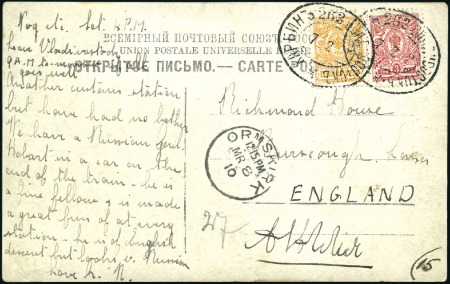 ВСЕМІРНЫЙ ПОЧТОВЫЙ СОЮЗЪ
UNION POSTALE UNIVERSELLE
ОТКРЫТОЕ ПИСЬМО. — CARTE
Leave Vladivostock
9 A.M. to-
goes well
Another customs station
but have had no bother
We have a Russian Gen.
in a car on the
end of the train. he is
a fine fellow & is made
a great fuss of at every
station — he is of English
descent but looks a Russian
Love
Richmond House
Burscough, Lancs
ENGLAND
ORMSKIRK
12.15 PM
MR 8
10
27
15